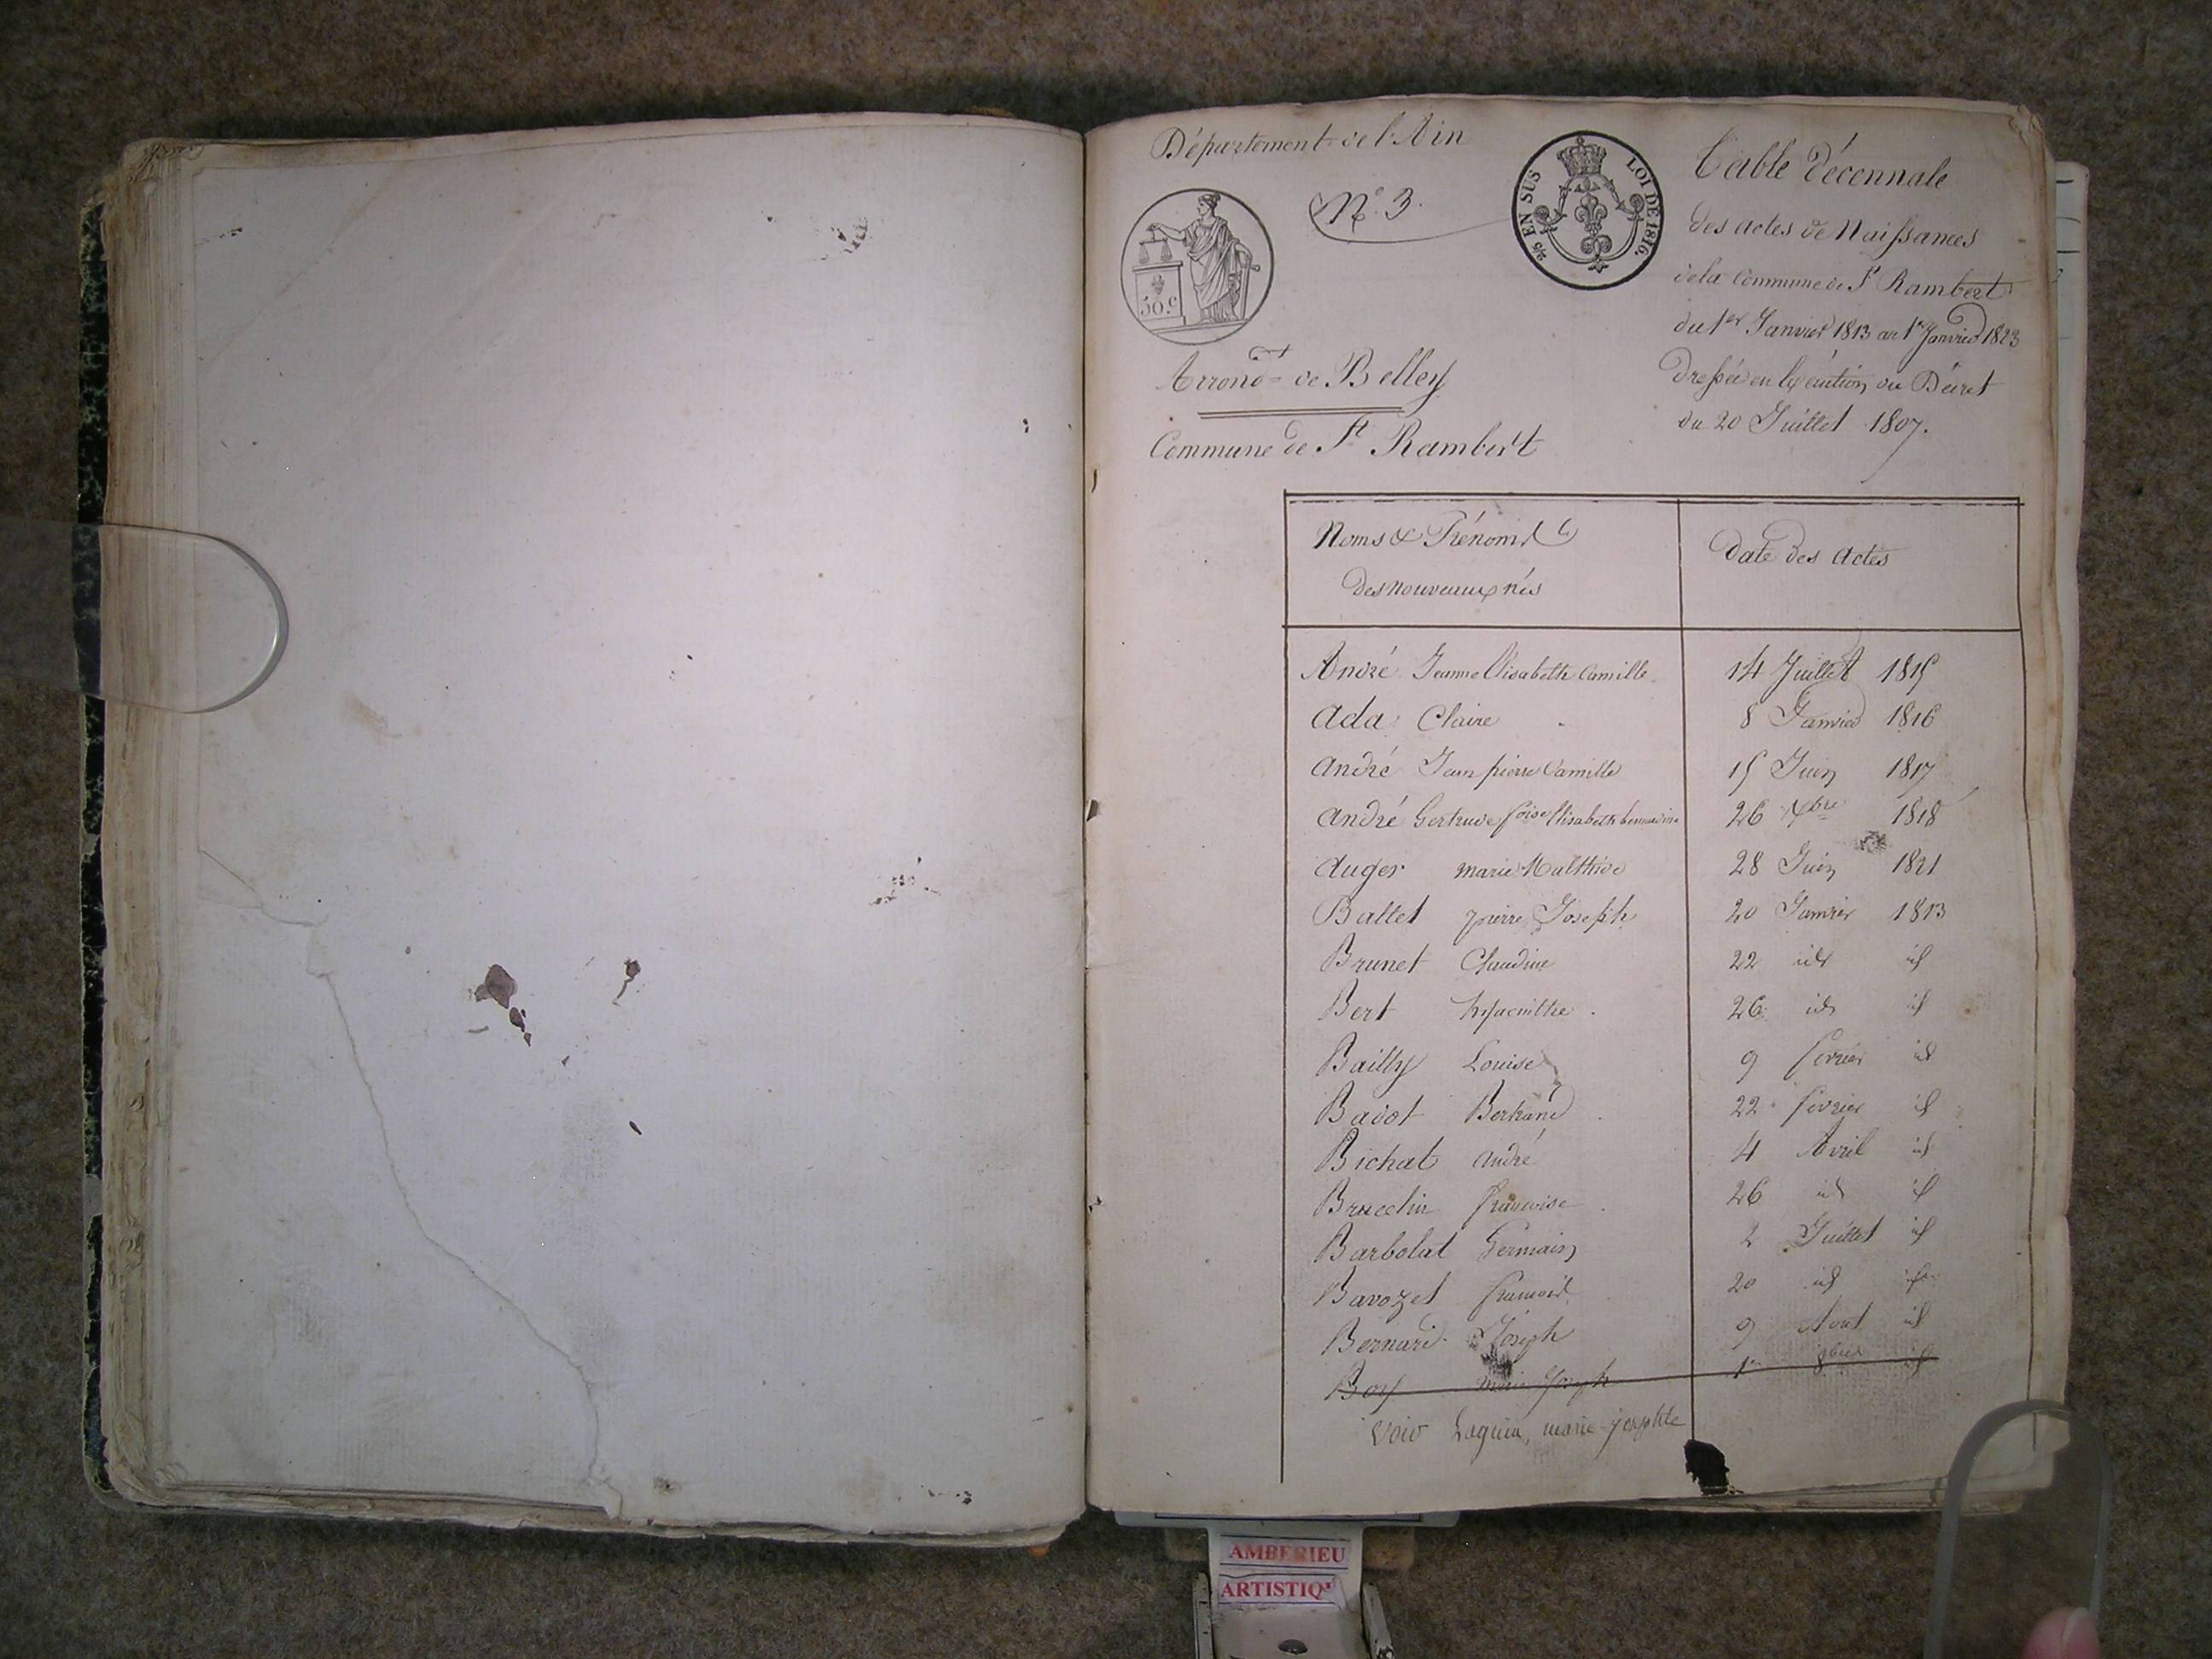 Département de l'Ain
N.° 3.
2/5 EN SUS LOI DE 1816.
50.c
Table Décennale
des actes de Naissances
de la Commune de St Rambert
du 1er Janvier 1813 au 1er Janvier 1823
Dressée en Exécution du Décret
du 20 Juillet 1807.
Arrondt de Belley
Commune de St Rambert
Noms & Prénoms
des nouveaux nés
Date des actes
André Jeanne Elisabeth Camille 14 Juillet 1815
Ada Claire 8 Janvier 1816
André Jean pierre Camille 15 Juin 1817
André Gertrude foise Elisabeth bernardine 26 Xbre 1818
Auger marie Malthide 28 Juin 1821
Ballet pierre Joseph 20 Janvier 1813
Brunet Claudine 22 id id
Bert hyacinthe 26 id id
Bailly Louise 9 fevrier id
Badot Bertrand 22 fevrier id
Bichat André 4 Avril id
Brucelin francoise 26 id id
Barbolat Germain 2 Juillet id
Bavozet francois 20 id id
Bernard Joseph 9 Aout id
Boy marie Joseph 1er 8bre id
Voir Laguin, marie-josephte
AMBERIEU
ARTISTIQ